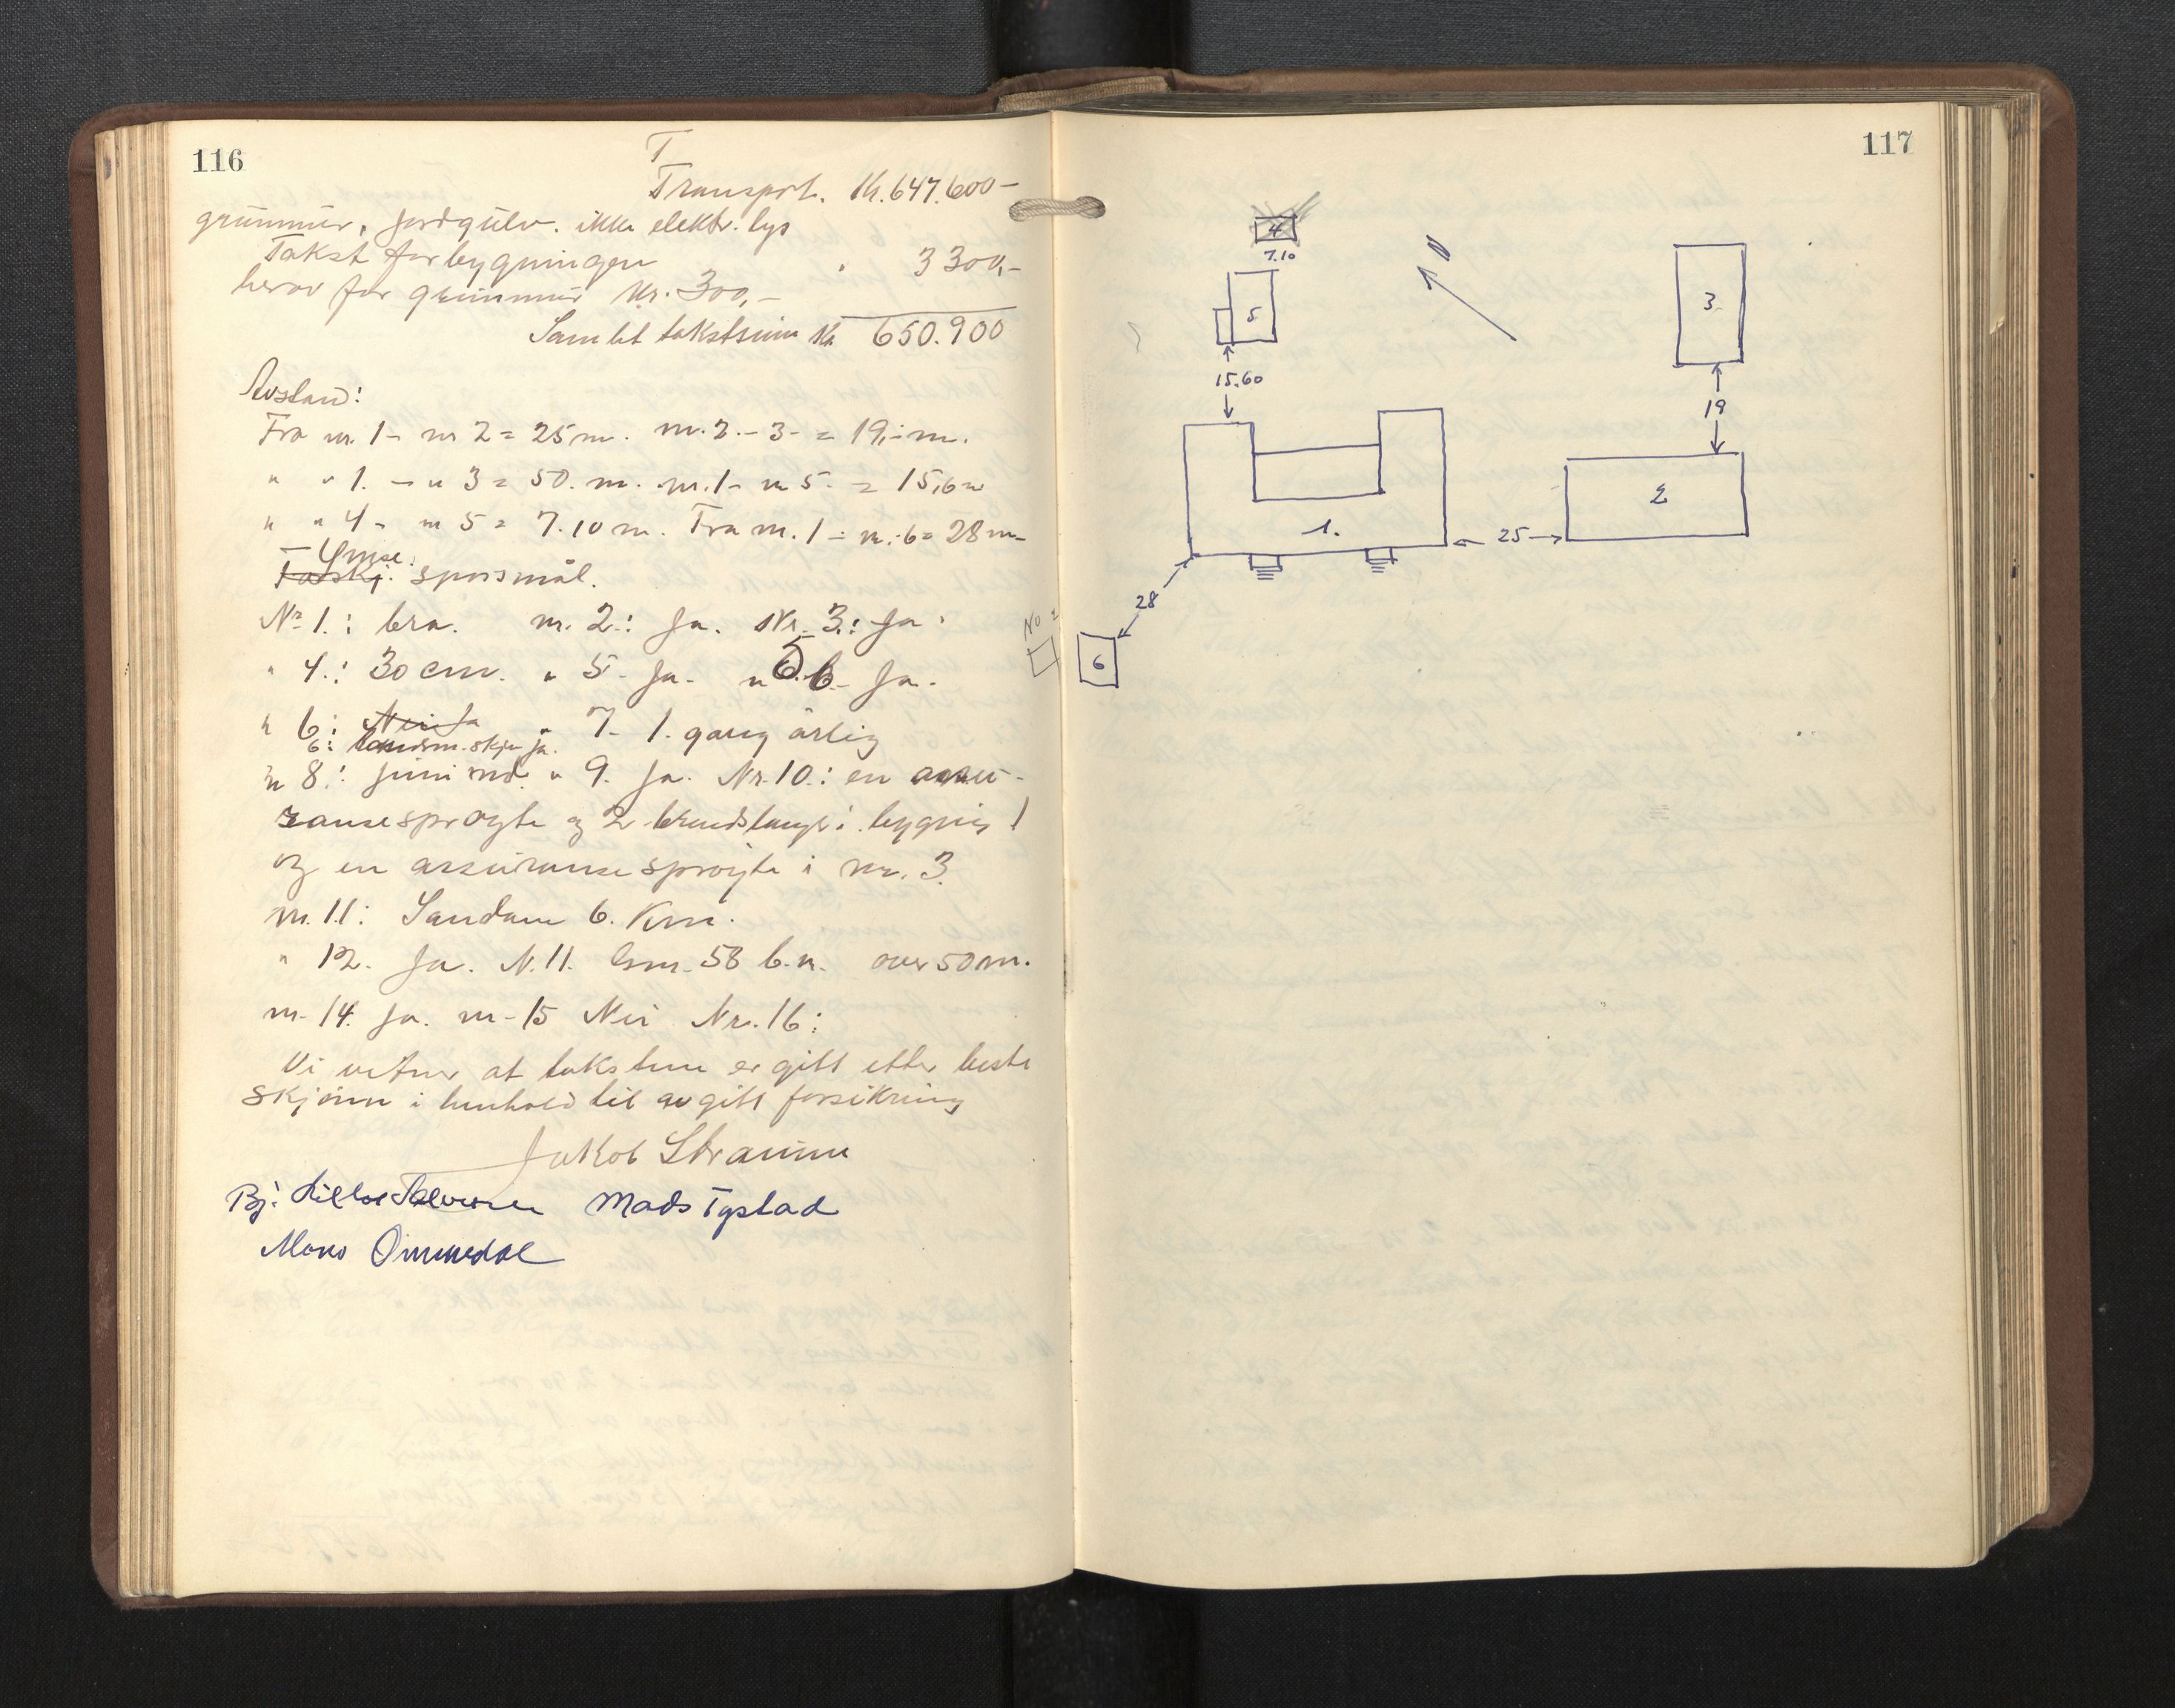 116
T
Transport. Kr. 647.600-
grunnmur, jordgulv. ikke elektr. lys
Takst for bygningen " 3300,-
herav for grunnmur Kr. 300,-
Samlet takstsum Kr 650.900
Avstand:
Fra nr. 1 - nr 2 = 25 m. nr. 2. - 3 - = 19,- m.
" " 1. - " 3 = 50. m. nr. 1 - nr 5. = 15,6 m
" " 4 - nr 5 = 7.10 m. Fra nr. 1 - nr. 6 = 28 m-
Ymse.
spørsmål.
Nr 1.: bra. nr. 2.: Ja. Nr. 3.: Ja.
" 4.: 30 cm. " 5 - Ja. " 6 - Ja.
" 6: Nei Ja " 7 - 1. gang årlig
6: skje ja.
" 8.: Juni md. " 9. Ja. Nr. 10.: en assu-
ransesprøyte og 2 brandslanger i bygning 1
og en assuransesprøyte i nr. 3.
nr. 11: Sandane 6. Km.
" 12. Ja. N. 11. Gnr. 58 b.n. over 50 m.
nr. 14. Ja. nr - 15 Nei Nr. 16:
Vi vitner at takstene er gitt etter beste
skjønn i henhold til avgitt forsikring
Jakob Straume
Mads Tystad
Mons Ommedal
117
4
7.10
5
15.60
3
19
2
1.
25
28
6
No 2